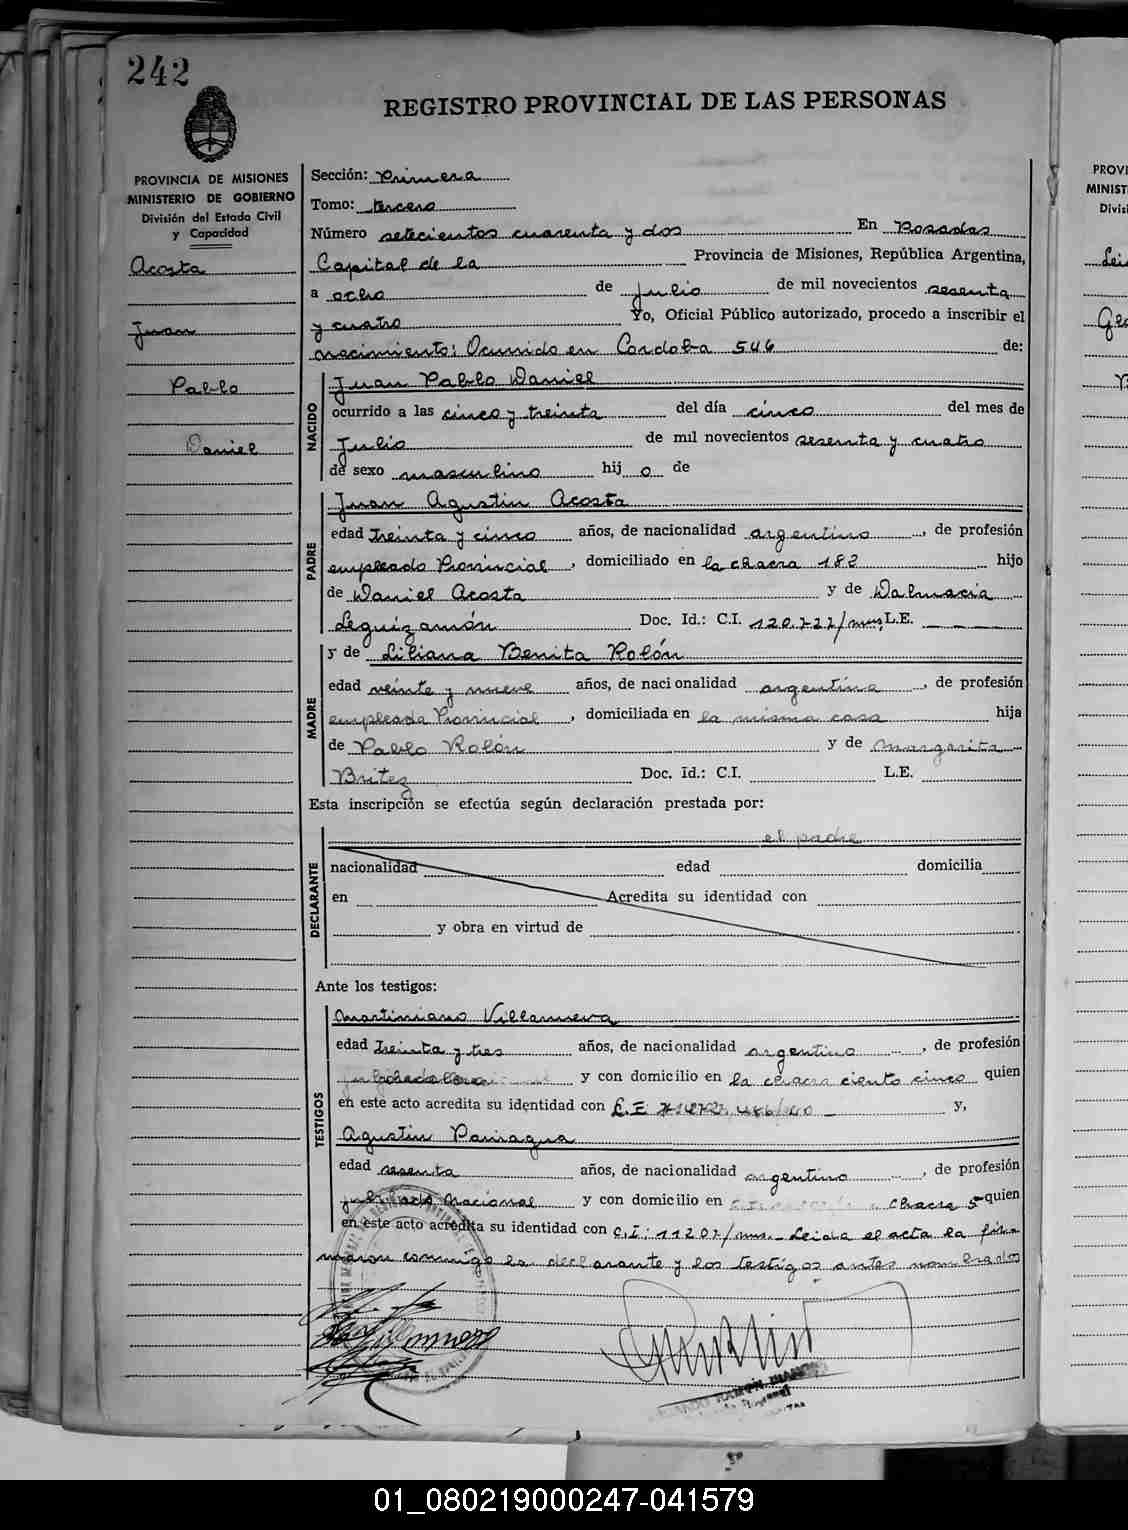 242
REGISTRO PROVINCIAL DE LAS PERSONAS
PROVINCIA DE MISIONES
MINISTERIO DE GOBIERNO
División del Estado Civil
y Capacidad
Acosta
Juan
Pablo
Daniel
Sección: Primera
Tomo: tercero
Número setecientos cuarenta y dos En Posadas
Capital de la Provincia de Misiones, República Argentina,
a ocho de Julio de mil novecientos sesenta
y cuatro Yo, Oficial Público autorizado, procedo a inscribir el
nacimiento: Ocurrido en Cordoba 546 de:
NACIDO
Juan Pablo Daniel
ocurrido a las cinco y treinta del día cinco del mes de
Julio de mil novecientos sesenta y cuatro
de sexo masculino hij o de
PADRE
Juan Agustin Acosta
edad treinta y cinco años, de nacionalidad argentino, de profesión
empleado Provincial, domiciliado en la chacra 182 hijo
de Daniel Acosta y de Dalmacia
Leguizamón Doc. Id.: C.I. 120.727/mns, L.E. _ _ _
MADRE
y de Liliana Benita Rolón
edad veinte y nueve años, de nacionalidad argentina, de profesión
empleada Provincial, domiciliada en la misma casa hija
de Pablo Rolón y de Margarita
Britez Doc. Id.: C.I. L.E.
Esta inscripción se efectúa según declaración prestada por:
DECLARANTE
el padre
nacionalidad edad domicilia
en Acredita su identidad con
y obra en virtud de
Ante los testigos:
TESTIGOS
Martiniano Villanueva
edad treinta y tres años, de nacionalidad argentino, de profesión
y con domicilio en la chacra ciento cinco quien
en este acto acredita su identidad con y,
Agustin Paniagua
edad sesenta años, de nacionalidad argentino, de profesión
jubilado Nacional y con domicilio en chacra 5 quien
en este acto acredita su identidad con C.I: 11207/mns. Leida el acta la fir
maron conmigo la declarante y los testigos antes nombrados
RAMÓN
PROVI
MINIST
Divis
01_080219000247-041579